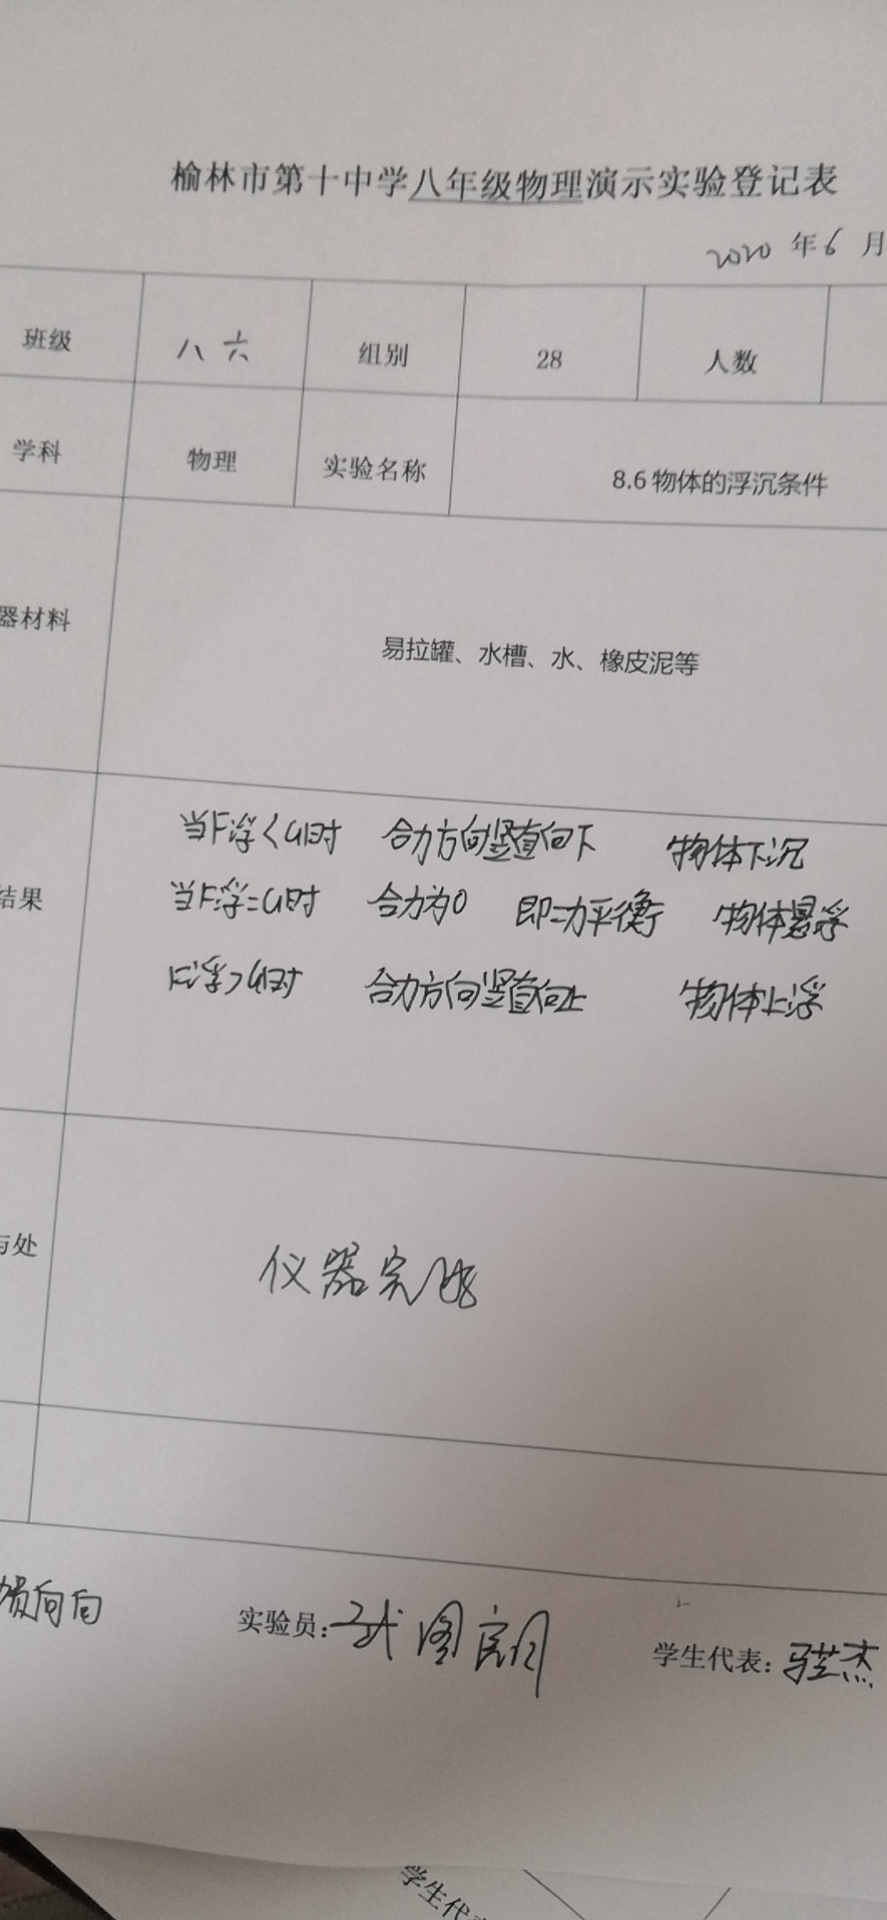 榆林市第十中学八年级物理演示实验登记表
2020 年 6 月
班级 八 六 组别 28 人数
学科 物理 实验名称 8.6 物体的浮沉条件
器材料 易拉罐、水槽、水、橡皮泥等
当F浮<G时 合力方向竖直向下 物体下沉
结果 当F浮=G时 合力为0 即二力平衡 物体悬浮
F浮>G时 合力方向竖直向上 物体上浮
与处 仪器完好
实验员: 学生代表:
学生代表